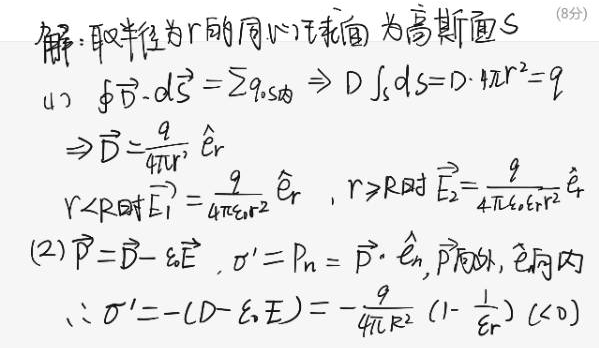 (8分)
解：取半径为r的同心球面为高斯面S
(1) ∮D⃗·dS⃗ = Σq₀S内 ⇒ D∫ₛds = D·4πr² = q
⇒ D⃗ = q/4πr² êr
r<R时 E₁⃗ = q/4πε₀r² êr , r≥R时 E₂⃗ = q/4πε₀εrr² êr
(2) P⃗ = D⃗ - ε₀E⃗ , σ' = Pn = P⃗·ên, P⃗向外, ê向内
∴ σ' = -(D-ε₀E) = -q/4πR² (1- 1/εr) (<0)